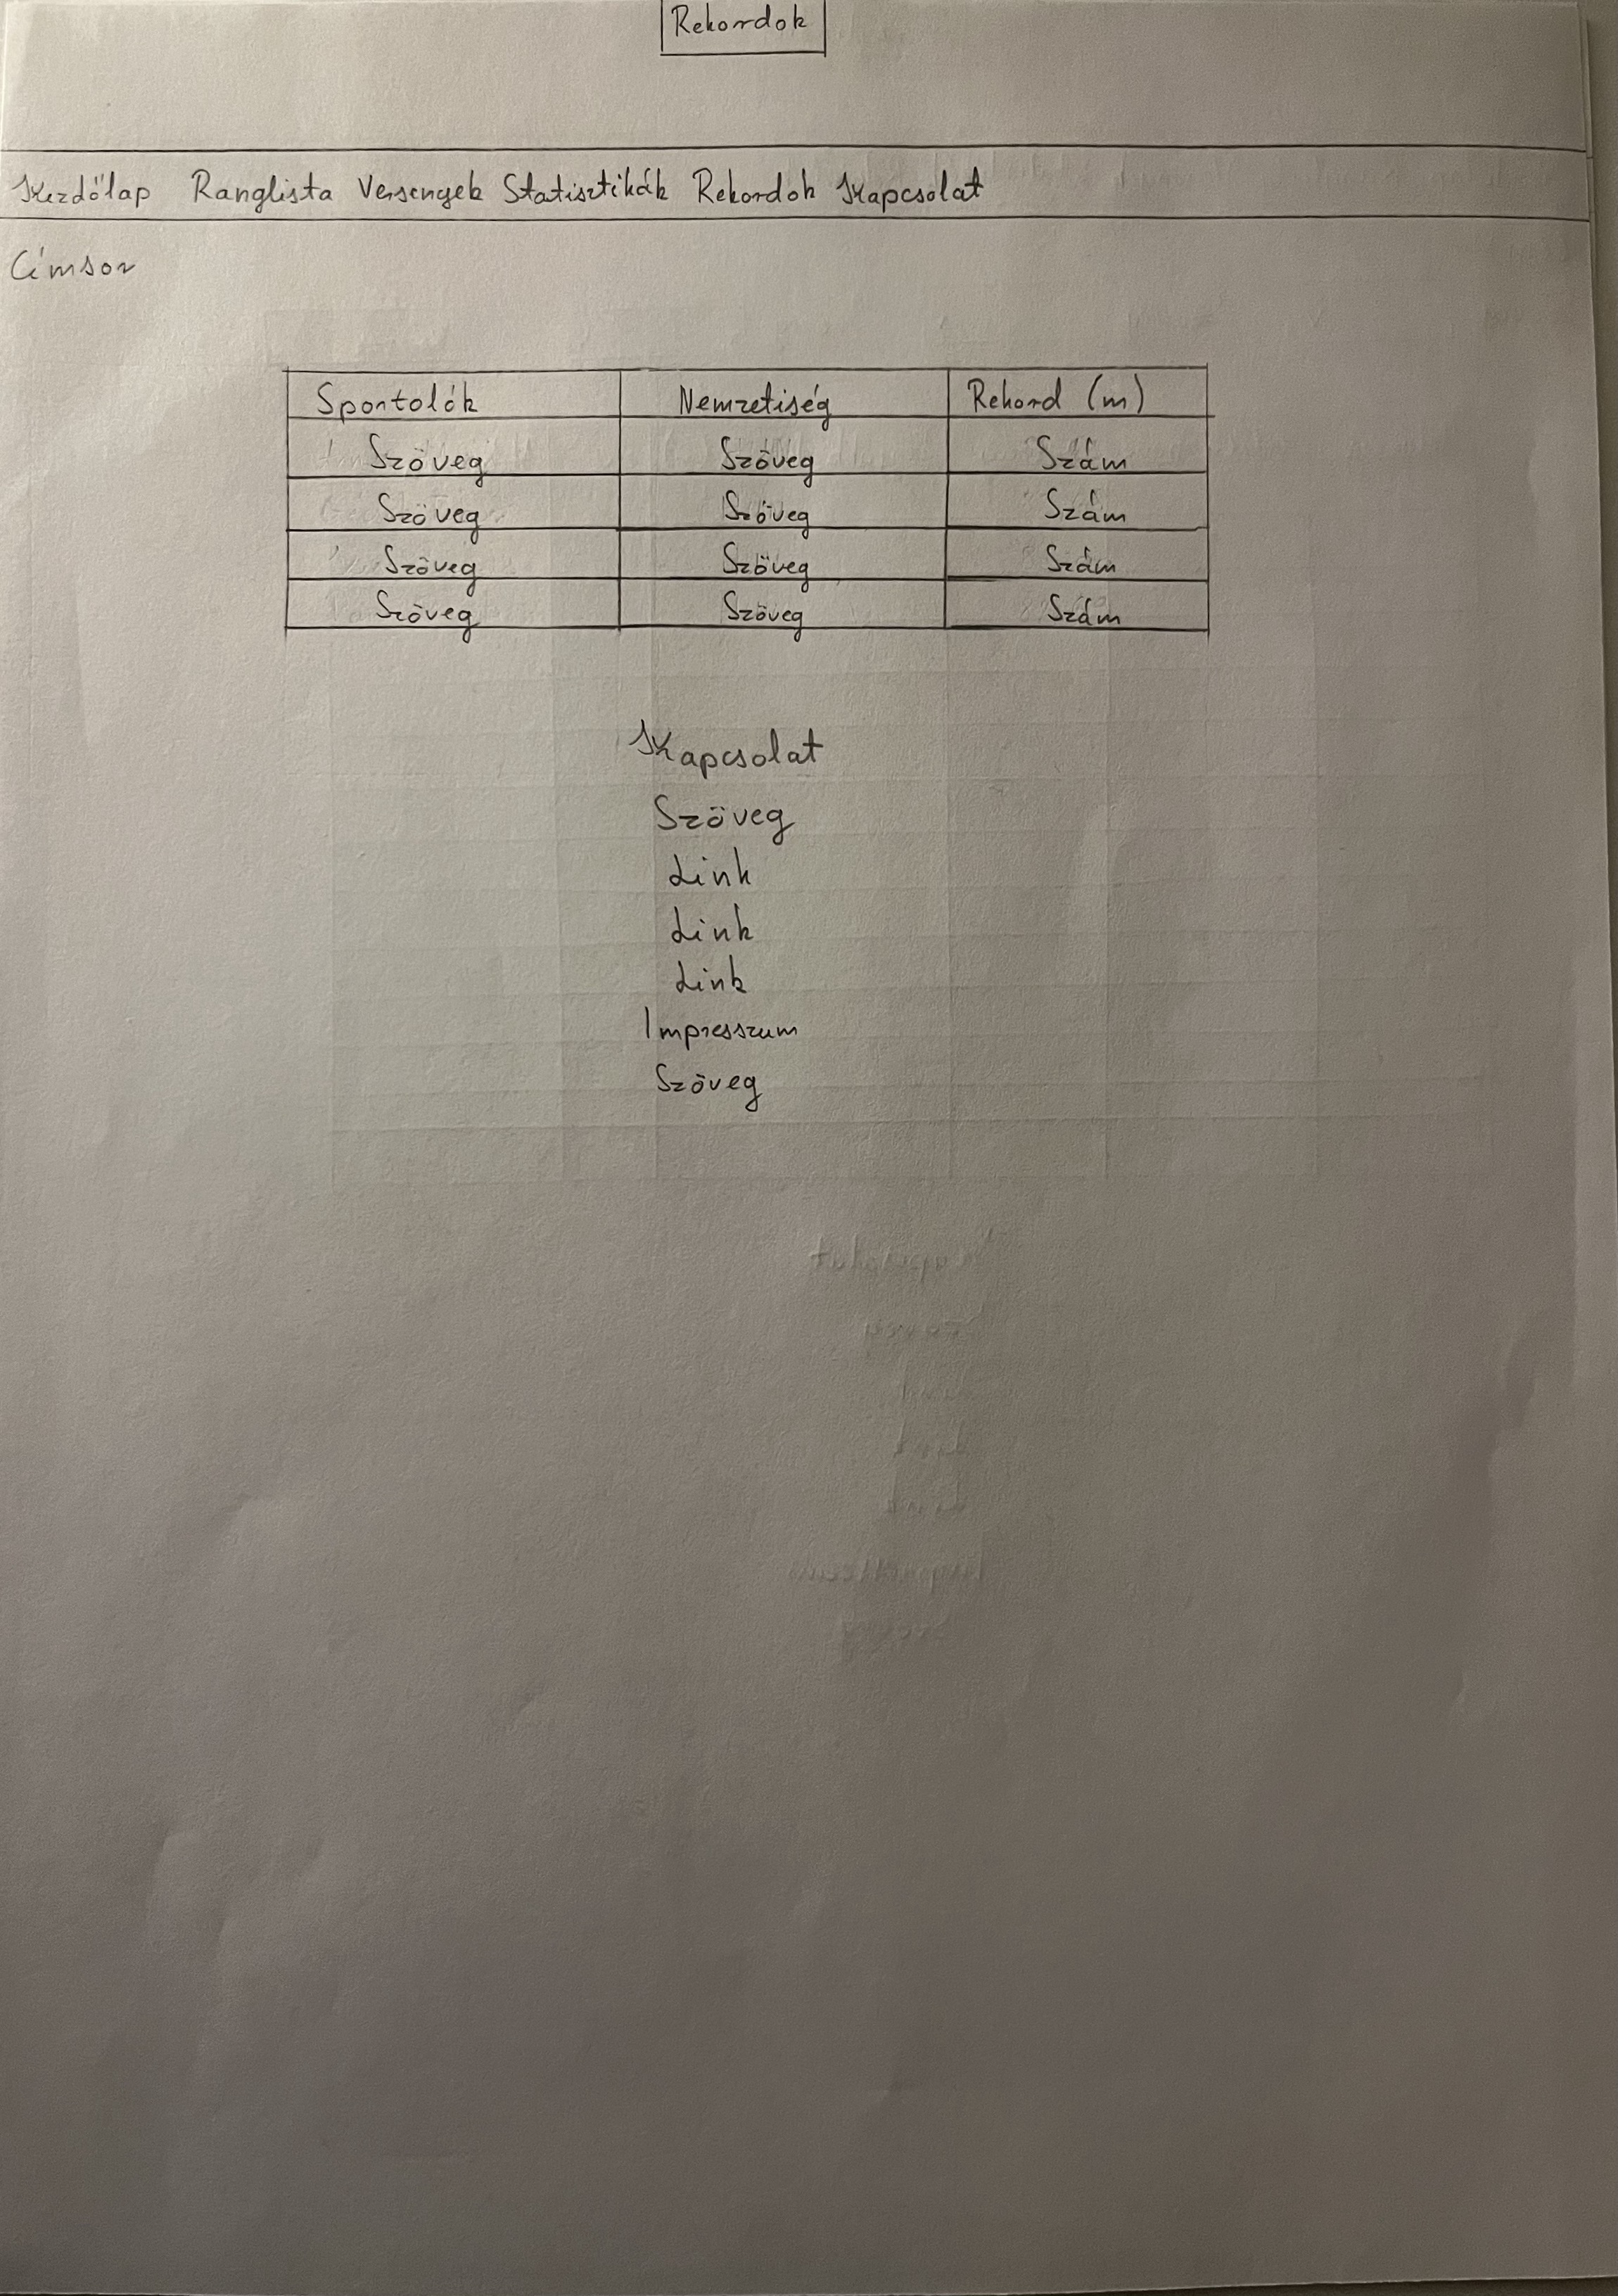 Rekordok
Kezdőlap Ranglista Versenyek Statisztikák Rekordok Kapcsolat
Címsor
Sportolók Nemzetiség Rekord (m)
Szöveg Szöveg Szám
Szöveg Szöveg Szám
Szöveg Szöveg Szám
Szöveg Szöveg Szám
Kapcsolat
Szöveg
Link
Link
Link
Impresszum
Szöveg